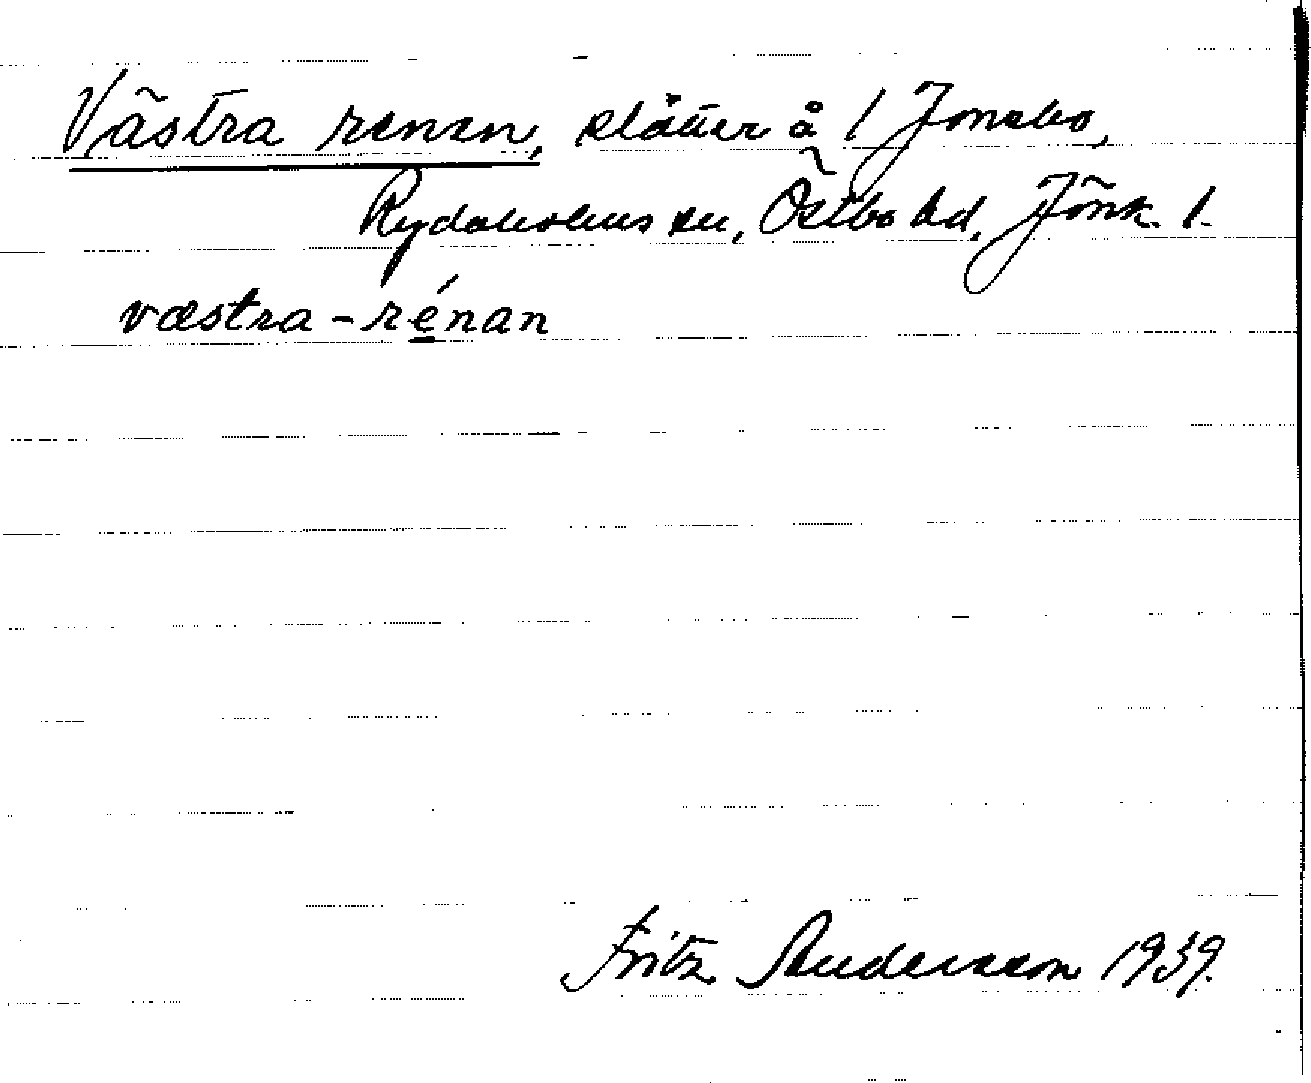 Västra renen, slåtter å 1 Jonsbo,
Rydaholms sn, Östbo hd, Jönk. l.
væstra-rénan
Fritz Andersson 1939.